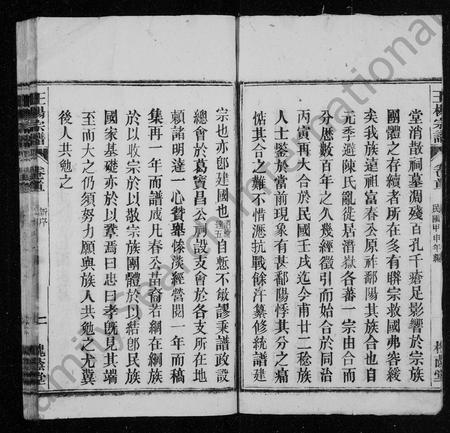 王楊宗譜
卷首
民國甲申年編
槐蔭堂
堂消散祠墓凋殘百孔千瘡足影響於宗族
團體之存續者所在多有聯宗救國弗容緩
矣我族遠祖富春公原祚鄱陽其族合也自
元季避陳氏亂徙居潛嶽各蕃一宗由合而
分歷數百年之久幾經徵引而始合於同治
丙寅再大合於民國壬戌迄今甫廿二稔族
人士鑒於當前現象有甚鄱陽悖其分之痛
惦其合之難不惜瀝抗戰餘汁纂修統譜建
宗也亦卽建國也
自暫不敏謬秉譜政設
總會於葛寶昌公祠設支會於各支所在地
賴諸明達一心贊勷慘淡經營閱一年而稿
集再一年而譜成凡春公苗裔若網在綱族
於以收宗於以敬宗族團體於以結卽民族
國家基礎亦於以鞏焉曰忠曰孝旣見其端
至而大之仍須努力願與族人共勉之尤冀
後人共勉之
王楊宗譜
卷首
新序
二
槐蔭堂
Family Search International